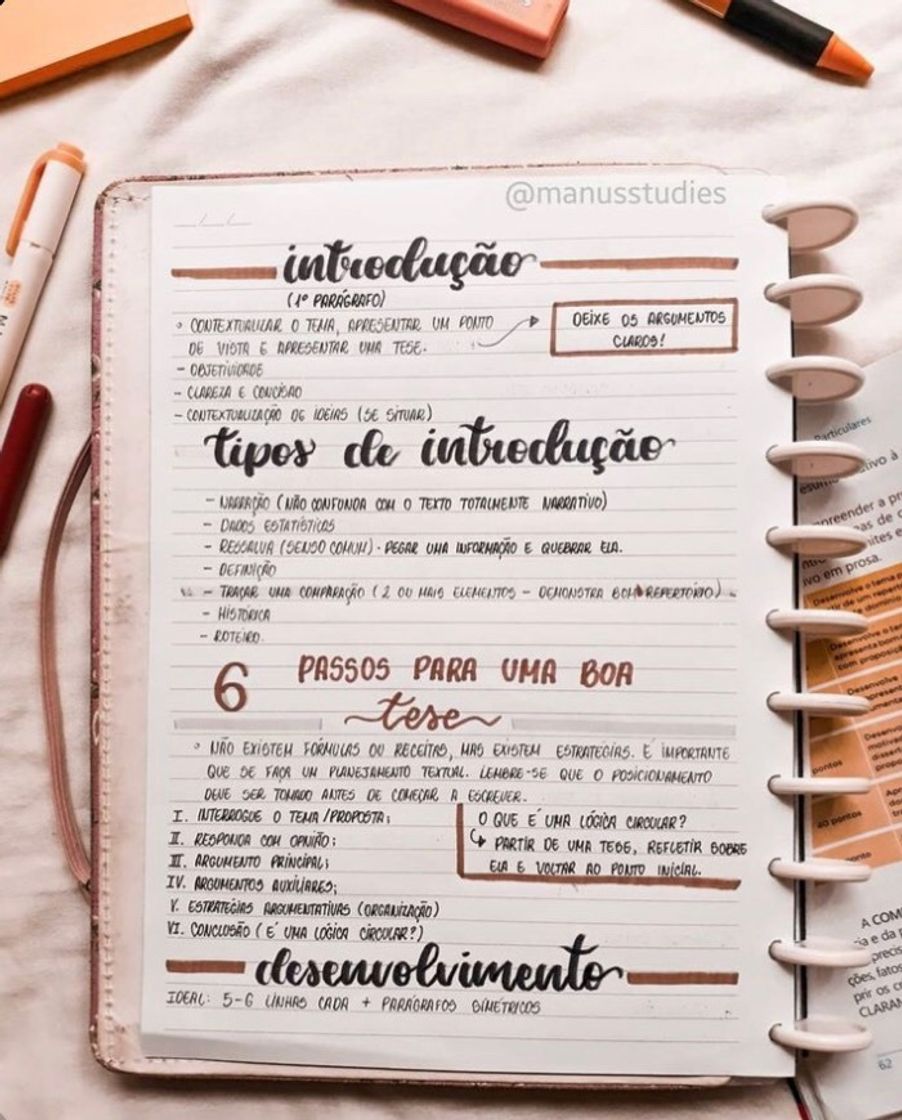 @manusstudies
introdução
(1º PARÁGRAFO)
◦ CONTEXTUALIZAR O TEMA, APRESENTAR UM PONTO
DE VISTA E APRESENTAR UMA TESE.
DEIXE OS ARGUMENTOS
CLAROS!
- OBJETIVIDADE
- CLAREZA E CONCISÃO
- CONTEXTUALIZAÇÃO DE IDEIAS (SE SITUAR)
tipos de introdução
- NARRAÇÃO (NÃO CONFUNDA COM O TEXTO TOTALMENTE NARRATIVO)
- DADOS ESTATÍSTICOS
- RESSALVA (SENSO COMUM) · PEGAR UMA INFORMAÇÃO E QUEBRAR ELA.
- DEFINIÇÃO
- TRAÇAR UMA COMPARAÇÃO (2 OU MAIS ELEMENTOS - DEMONSTRA BOM REPERTÓRIO)
- HISTÓRICA
- ROTEIRO.
6 PASSOS PARA UMA BOA
tese
◦ NÃO EXISTEM FÓRMULAS OU RECEITAS, MAS EXISTEM ESTRATÉGIAS. É IMPORTANTE
QUE SE FAÇA UM PLANEJAMENTO TEXTUAL. LEMBRE-SE QUE O POSICIONAMENTO
DEVE SER TOMADO ANTES DE COMEÇAR A ESCREVER.
I. INTERROGUE O TEMA/PROPOSTA;
II. RESPONDA COM OPINIÃO;
III. ARGUMENTO PRINCIPAL;
IV. ARGUMENTOS AUXILIARES;
V. ESTRATÉGIAS ARGUMENTATIVAS (ORGANIZAÇÃO)
VI. CONCLUSÃO (É UMA LÓGICA CIRCULAR?)
O QUE É UMA LÓGICA CIRCULAR?
↳ PARTIR DE UMA TESE, REFLETIR SOBRE
ELA E VOLTAR AO PONTO INICIAL.
desenvolvimento
IDEAL: 5-6 LINHAS CADA + PARÁGRAFOS SIMÉTRICOS
Particulares
ivo em prosa.
Desenvolve o tema
40 pontos
A COM
CLARAN
62